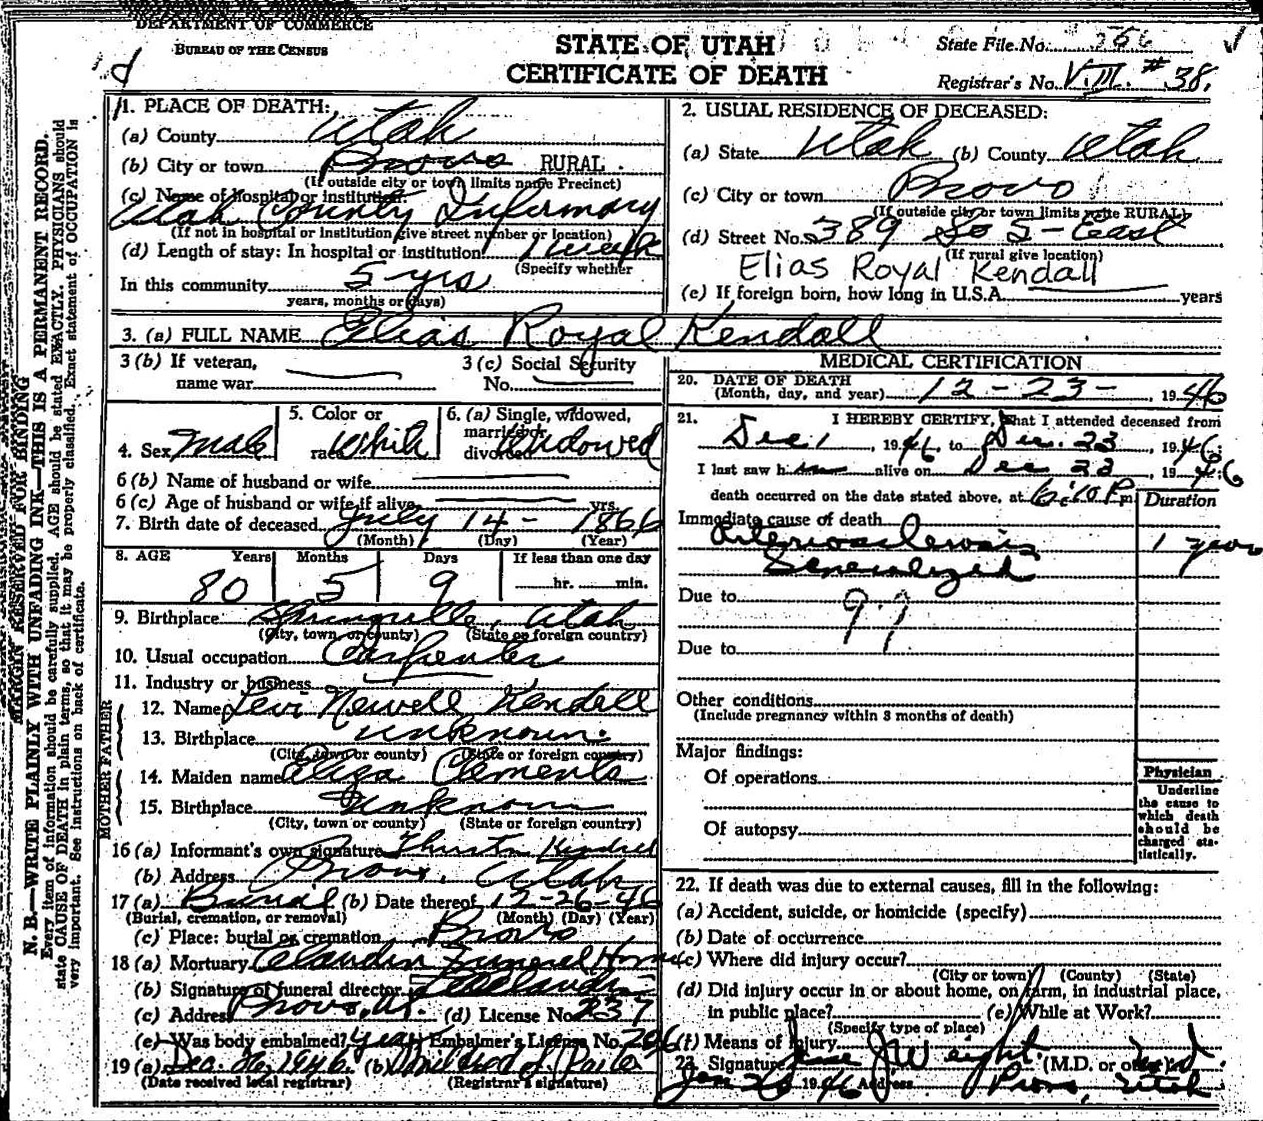 DEPARTMENT OF COMMERCE
BUREAU OF THE CENSUS
STATE OF UTAH
CERTIFICATE OF DEATH
State File No. 366
Registrar's No. V.III. #38.
N. B.—WRITE PLAINLY WITH UNFADING INK—THIS IS A PERMANENT RECORD.
MARGIN RESERVED FOR BINDING
Every item of information should be carefully supplied. AGE should be stated EXACTLY. PHYSICIANS should
state CAUSE OF DEATH in plain terms, so that it may be properly classified. Exact statement of OCCUPATION is
very important. See instructions on back of certificate.
1. PLACE OF DEATH:
(a) County Utah
(b) City or town Provo RURAL
(If outside city or town limits name Precinct)
(c) Name of hospital or institution:
Utah County Infirmary
(If not in hospital or institution give street number or location)
(d) Length of stay: In hospital or institution 1 week
(Specify whether
In this community 5 yrs
years, months or days)
2. USUAL RESIDENCE OF DECEASED:
(a) State Utah (b) County Utah
(c) City or town Provo
(If outside city or town limits write RURAL)
(d) Street No. 389 So 5- East
(If rural give location)
Elias Royal Kendall
(e) If foreign born, how long in U.S.A. years
3. (a) FULL NAME Elias Royal Kendall
3 (b) If veteran,
name war
3 (c) Social Security
No.
4. Sex Male
5. Color or
race White
6. (a) Single, widowed,
married or
divorced Widowed
6 (b) Name of husband or wife
6 (c) Age of husband or wife if alive yrs.
7. Birth date of deceased July 14- 1866
(Month) (Day) (Year)
8. AGE Years Months Days If less than one day
80 5 9 hr. min.
9. Birthplace Springville, Utah
(City, town or county) (State or foreign country)
10. Usual occupation Carpenter
11. Industry or business
FATHER
12. Name Levi Newell Kendall
13. Birthplace unknown.
(City, town or county) (State or foreign country)
MOTHER
14. Maiden name Eliza Clements
15. Birthplace Unknown
(City, town or county) (State or foreign country)
16 (a) Informant's own signature
(b) Address Provo, Utah
17 (a) Burial (b) Date thereof 12-26-46
(Burial, cremation, or removal) (Month) (Day) (Year)
(c) Place: burial or cremation Provo
18 (a) Mortuary Claudin Funeral Home
(b) Signature of funeral director
(c) Address Provo, Ut. (d) License No. 237
(e) Was body embalmed? Yes Embalmer's License No. 206
19 (a) Dec. 26, 1946. (b) Mildred J.
(Date received local registrar) (Registrar's signature)
MEDICAL CERTIFICATION
20. DATE OF DEATH
(Month, day, and year) 12-23-, 1946
21. I HEREBY CERTIFY, that I attended deceased from
Dec 1, 1946, to Dec. 23, 1946.
I last saw him alive on Dec 23, 1946
death occurred on the date stated above, at 6:10 P m. Duration
Immediate cause of death
Arteriosclerosis 1 year
Generalized
Due to 97
Due to
Other conditions
(Include pregnancy within 3 months of death)
Major findings:
Of operations
Of autopsy
Physician
Underline
the cause to
which death
should be
charged sta-
tistically.
22. If death was due to external causes, fill in the following:
(a) Accident, suicide, or homicide (specify)
(b) Date of occurrence
(c) Where did injury occur?
(City or town) (County) (State)
(d) Did injury occur in or about home, on farm, in industrial place,
in public place? (e) While at Work?
(Specify type of place)
(f) Means of Injury
23. Signature Jesse J Weight. (M.D. or other) M.D.
26 1946 Address Provo, Utah